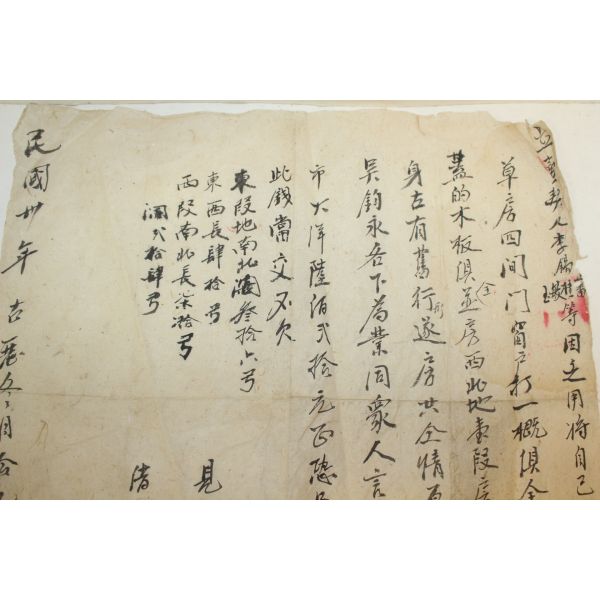 立賣契人李錫 等因乏用將自己
草房四間门窗户打一概俱全
蓋的木板俱並全房西北地東段房
身左有舊行 遂房共仝情
吴鈞永名下為業同衆人言
市大洋陸佰弍拾元正恐
此錢當交不欠
東段地南北濶叁拾六弓
東西長肆拾弓
西段南北長柒拾弓
濶弍拾肆弓
見
清
民國卅年古歷冬月拾